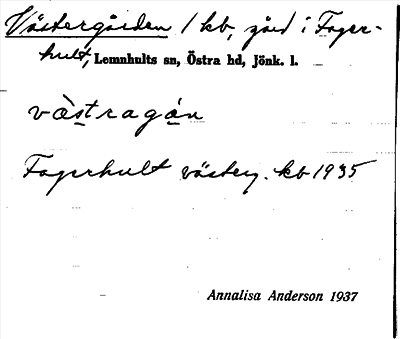 Västergården 1 kb, gård i Fager-
hult, Lemnhults sn, Östra hd, Jönk. l.
väs̱tragá̱n
Fagerhult västerg. kb 1935
Annalisa Anderson 1937